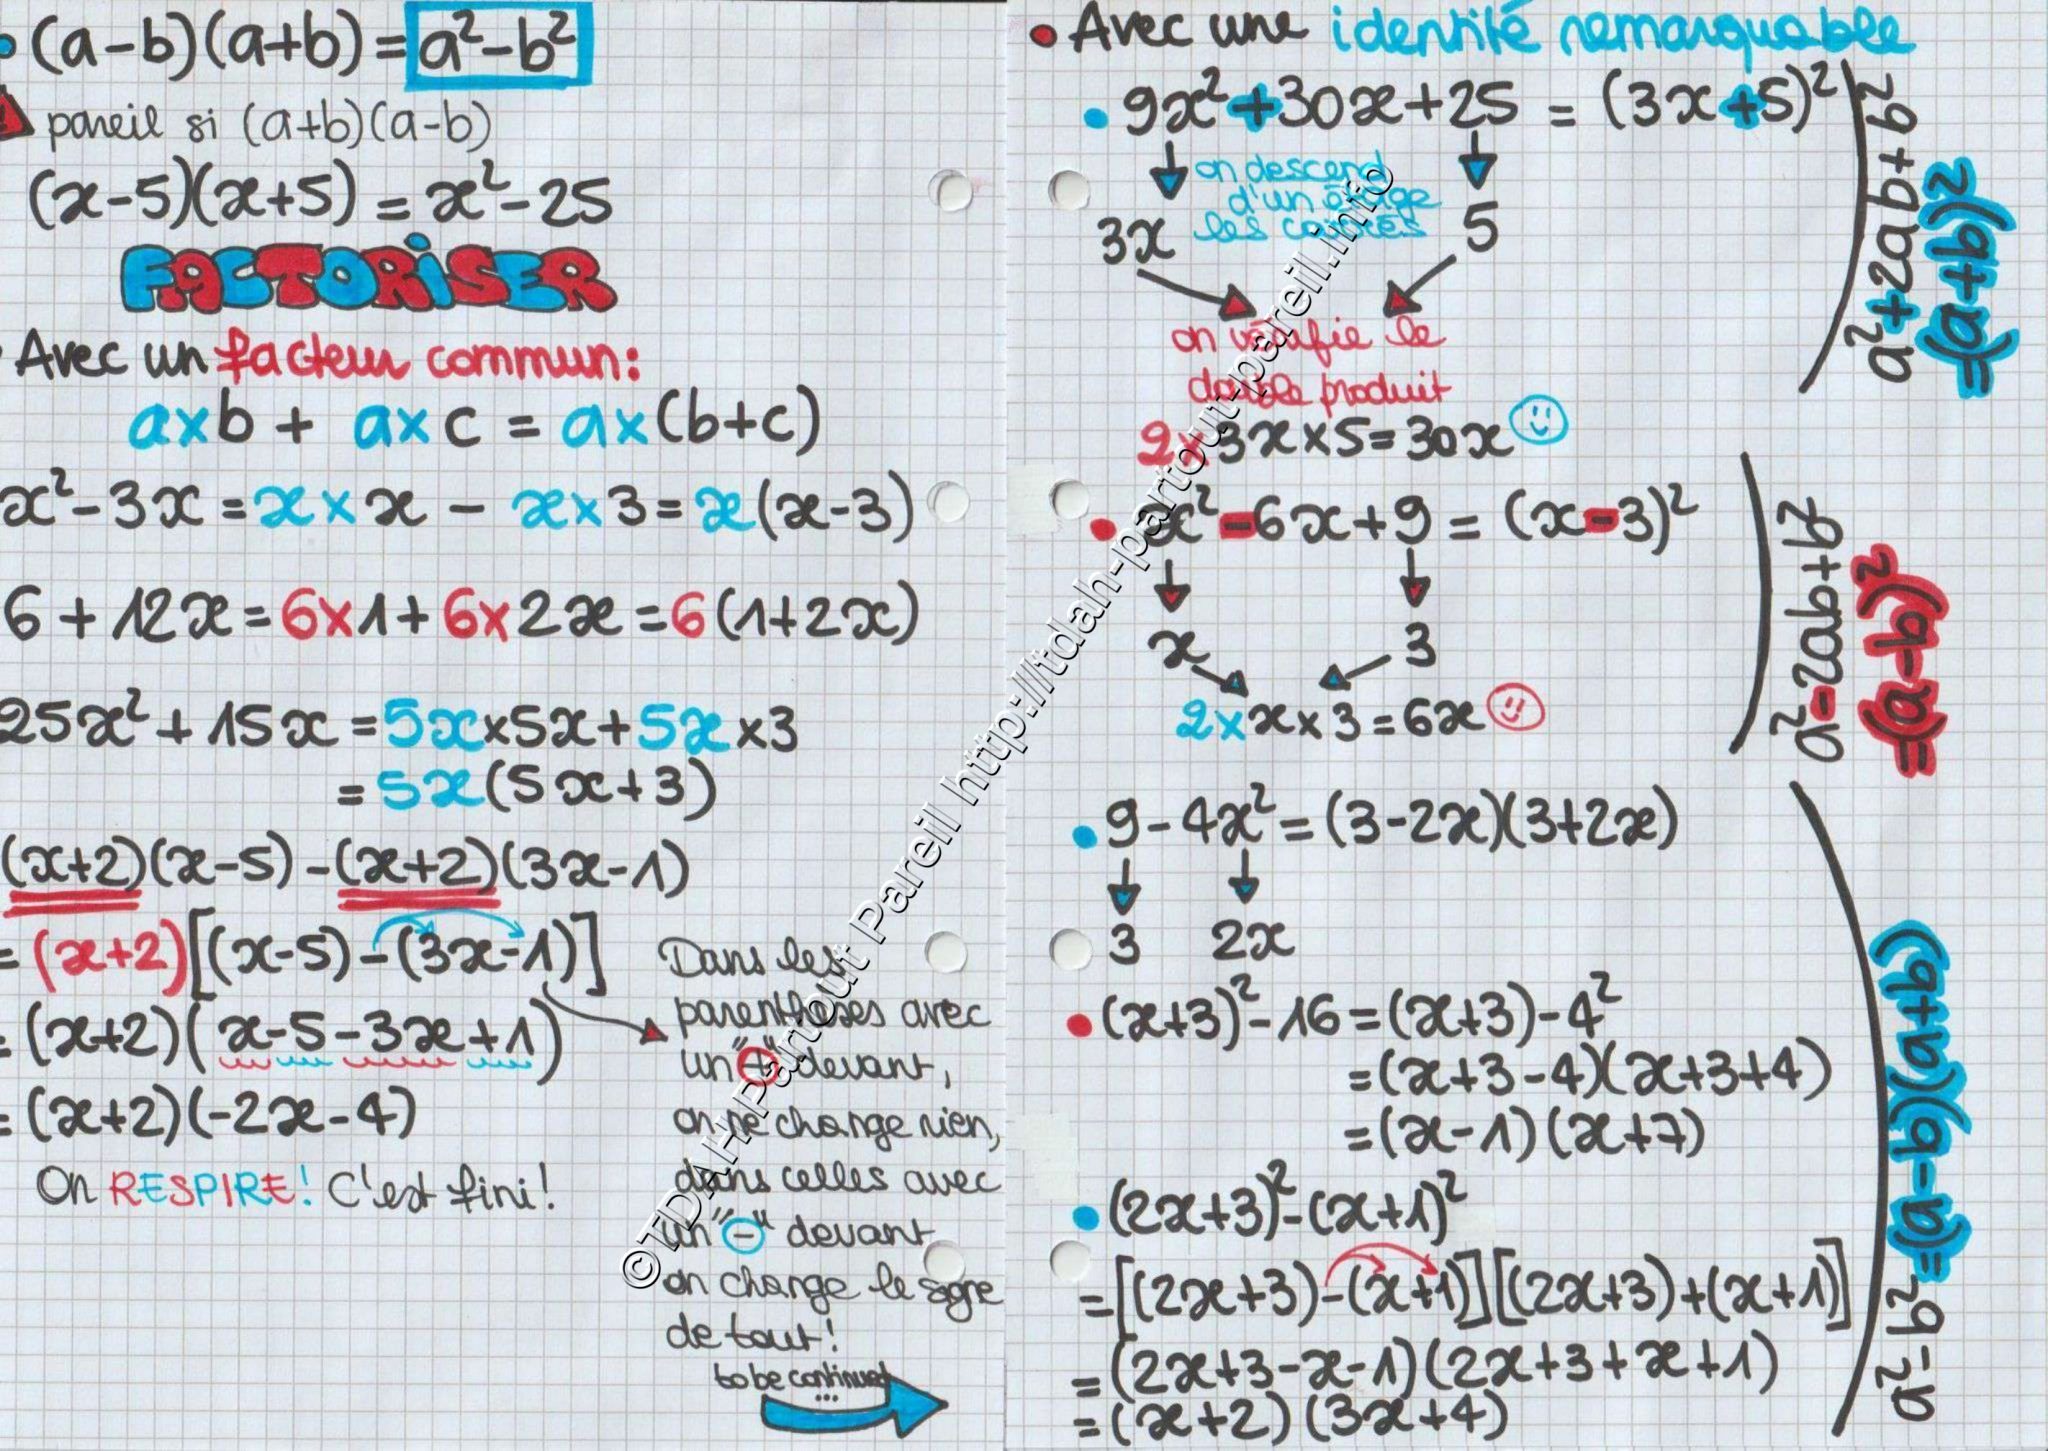 (a-b)(a+b) = a²-b²
pareil si (a+b)(a-b)
(x-5)(x+5) = x²-25
FACTORISER
Avec un facteur commun:
axb + axc = ax(b+c)
x²-3x = x×x - x×3 = x(x-3)
6 + 12x = 6×1 + 6×2x = 6(1+2x)
25x² + 15x = 5x×5x + 5x×3
= 5x(5x+3)
(x+2)(x-5) - (x+2)(3x-1)
= (x+2)[(x-5) - (3x-1)]
= (x+2)(x-5-3x+1)
= (x+2)(-2x-4)
On RESPIRE! C'est fini!
Dans les
parenthèses avec
un "+" devant,
on ne change rien,
dans celles avec
un "-" devant
on change le signe
de tout!
to be continued
...
• Avec une identité remarquable
• 9x²+30x+25 = (3x+5)²
on descend
d'un étage
les carrés
3x 5
on vérifie le
double produit
2×3x×5=30x
• x²-6x+9 = (x-3)²
x 3
2×x×3=6x
• 9-4x² = (3-2x)(3+2x)
3 2x
• (x+3)²-16 = (x+3)-4²
= (x+3-4)(x+3+4)
= (x-1)(x+7)
• (2x+3)²-(x+1)²
= [(2x+3)-(x+1)][(2x+3)+(x+1)]
= (2x+3-x-1)(2x+3+x+1)
= (x+2)(3x+4)
a²+2ab+b²
=(a+b)²
a²-2ab+b²
=(a-b)²
a²-b²=(a-b)(a+b)
©TDAH Partout Pareil http://tdah-partout-pareil.info